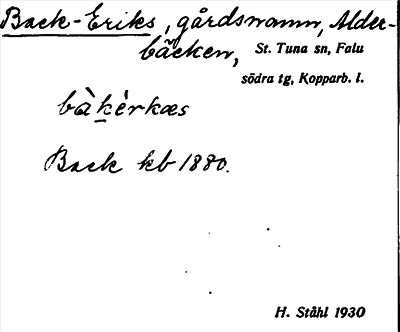 Back-Eriks, gårdsnamn, Alder-
bäcken, St. Tuna sn, Falu
södra tg, Kopparb. l.
bàk̠érkæs
Back kb 1880.
H. Ståhl 1930